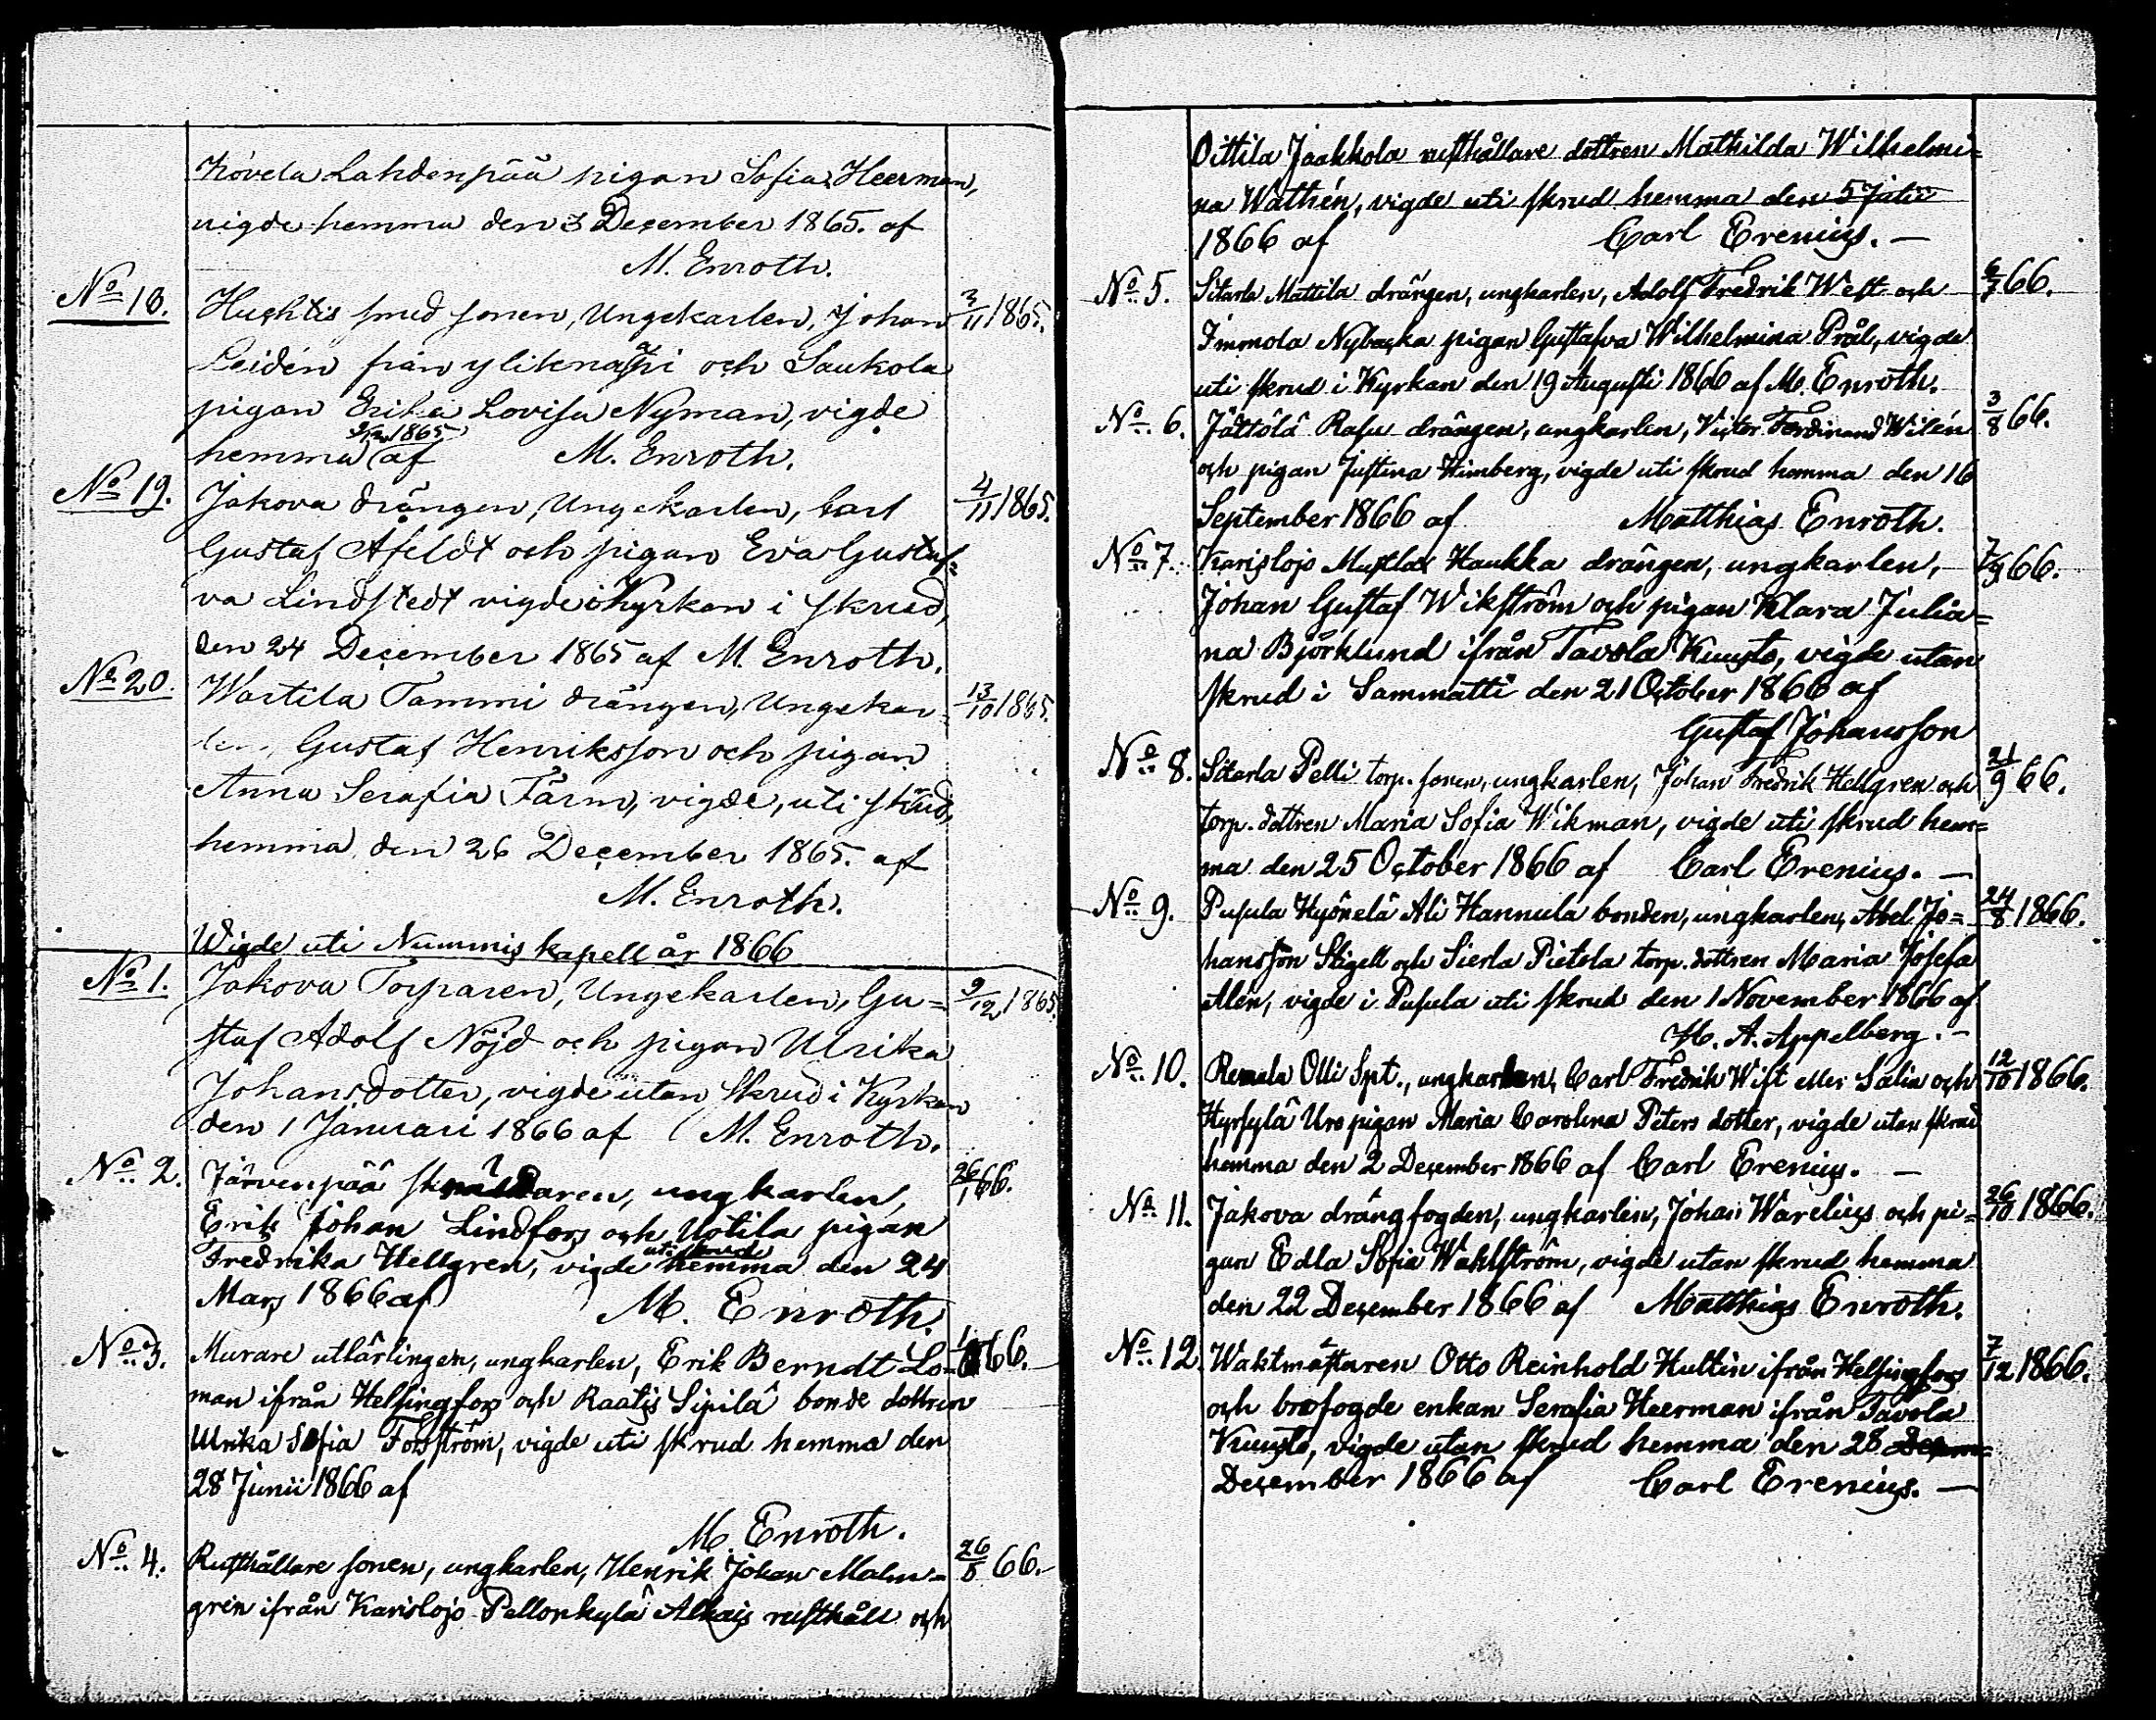 Kovela Lahdenpää pigan Sofia Heerman,
vigde hemma den 3 December 1865. af
M. Enroth.
No 18. Huhtis smed sonen, Ungekarlen, Johan 3/11 1865.
Leidén från ylikenaspi och Saukola
pigan Erika Lovisa Nyman, vigde
hemma 9/12 1865 af M. Enroth.
No 19. Jakova drängen, Ungekarlen, Carl 4/11 1865.
Gustaf Afeldt och pigan Eva Gustaf-
va Lindstedt vigde i Kyrkan i skrud,
den 24 December 1865 af M. Enroth.
No 20. Wartila Tammi drängen, Ungekar- 13/10 1865.
len, Gustaf Henriksson och pigan
Anna Serafia Färm, vigde, uti skrud,
hemma den 26 December 1865. af
M. Enroth.
Wigde uti Nummis kapell år 1866
No 1. Jakova Torparen, Ungekarlen, Gu- 9/12 1865.
staf Adolf Nöjd och pigan Ulrika
Johansdotter, vigde utan Skrud i Kyrkan
den 1 Januari 1866 af M. Enroth.
No 2. Järvenpää ungkarlen, 26/1 66.
Erik Johan Lindfors och Uotila pigan
Fredrika Hellgren, vigde uti skrud hemma den 24
Mars 1866 af M. Enroth.
No 3. Murare utlärlingen, ungkarlen, Erik Berndt Lo- 66.
man ifrån Helsingfors och Raatis Sipilä bonde dottren
Ulrika Sofia Forsström, vigde uti skrud hemma den
28 Junii 1866 af
M. Enroth.
No 4. Rusthållare sonen, ungkarlen, Henrik Johan Malm- 26/5 66.
gren ifrån Karislojo Pellonkylä Alhais rusthåll och
Oittila Jaakkola rusthållare dottren Mathilda Wilhelmi-
na Wathén, vigde uti skrud hemma den 5 Julii
1866 af Carl Erenius.
No 5. Sitarla Mattila drängen, ungkarlen, Adolf Fredrik West och 6/7 66.
Immola Nybacka pigan Gustafva Wilhelmina Prål, vigde
uti skrud i Kyrkan den 19 Augusti 1866 af M. Enroth.
No 6. Jättölä Rasu drängen, ungkarlen, Victor Ferdinand Wilén 3/8 66.
och pigan Justina Himberg, vigde uti skrud hemma den 16
September 1866 af Matthias Enroth.
No 7. Karislojo Mustlax Haukka drängen, ungkarlen, 7/9 66.
Johan Gustaf Wikström och pigan Klara Julia-
na Björklund ifrån Tavola Kuusto, vigde utan
skrud i Sammatti den 21 October 1866 af
Gustaf Johansson
No 8. Sitarla Pelli torp. sonen, ungkarlen, Johan Fredrik Hellgren och 21/9 66.
torp. dottren Maria Sofia Wikman, vigde uti skrud hem-
ma den 25 October 1866 af Carl Erenius.
No 9. Pusula Hyönelä Ali Hannula bonden, ungkarlen, Abel Jo- 24/8 1866.
hansson Stigell och Sierla Pietola torp. dottren Maria Josefa
Alén, vigde i Pusula uti skrud den 1 November 1866 af
H. A. Appelberg.
No 10. Remala Olli Spt., ungkarlen, Carl Fredrik Wist eller Salin och 12/10 1866.
Hyrsylä Uro pigan Maria Carolina Peters dotter, vigde utan skrud
hemma den 2 December 1866 af Carl Erenius.
No 11. Jakova drängfogden, ungkarlen, Johan Warelius och pi- 26/10 1866.
gan Edla Sofia Wahlström, vigde utan skrud hemma
den 22 December 1866 af Matthias Enroth.
No 12. Waktmästaren Otto Reinhold Hultin ifrån Helsingfors 7/12 1866.
och brofogde enkan Serafia Heerman ifrån Tavola
Kuusto, vigde utan skrud hemma den 28 Decem-
December 1866 af Carl Erenius.